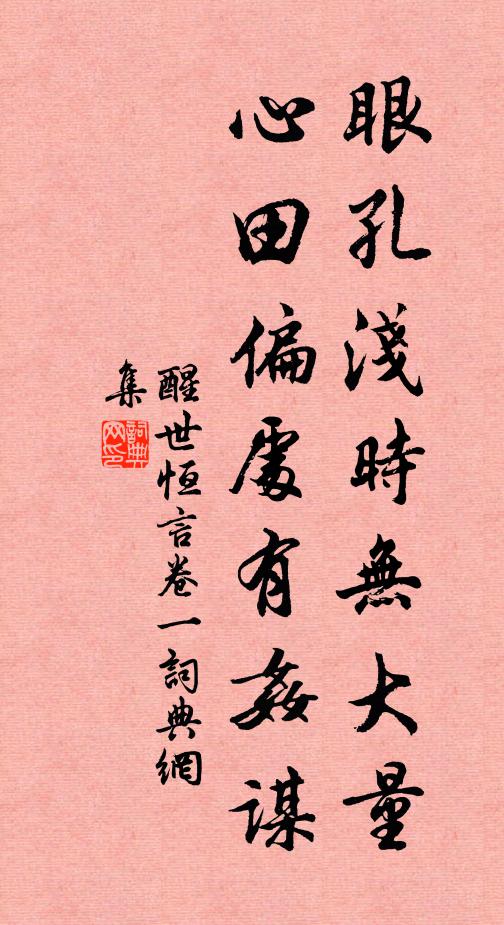 眼孔淺時無大量
心田偏處有姦謀
醒世恒言卷一詞典網
集
詞典
网印